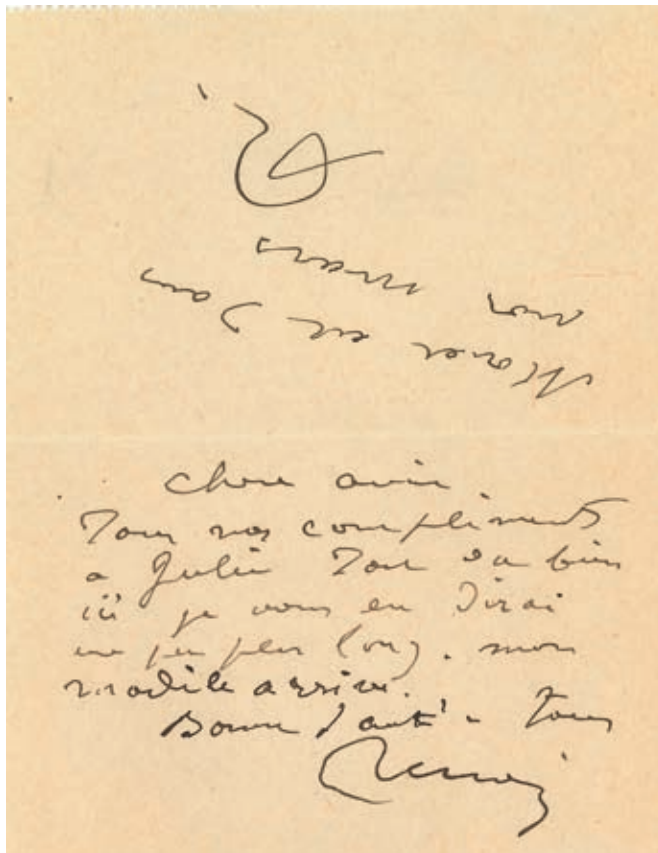 Chère amie
Tous nos compliments
a Julie Tout va bien
ici je vous en dirai
un peu plus long. mon
modèle arrive.
Bonne santé à tous
Renoir
Monet est dans
nos murs
R.